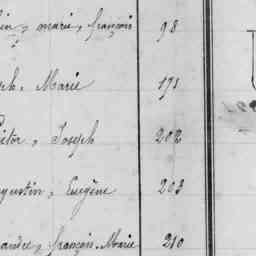 lin, marie, françois 98
ph, Marie 191
ictor, Joseph 202
gustin, Eugène 203
andre, françois, Marie 210